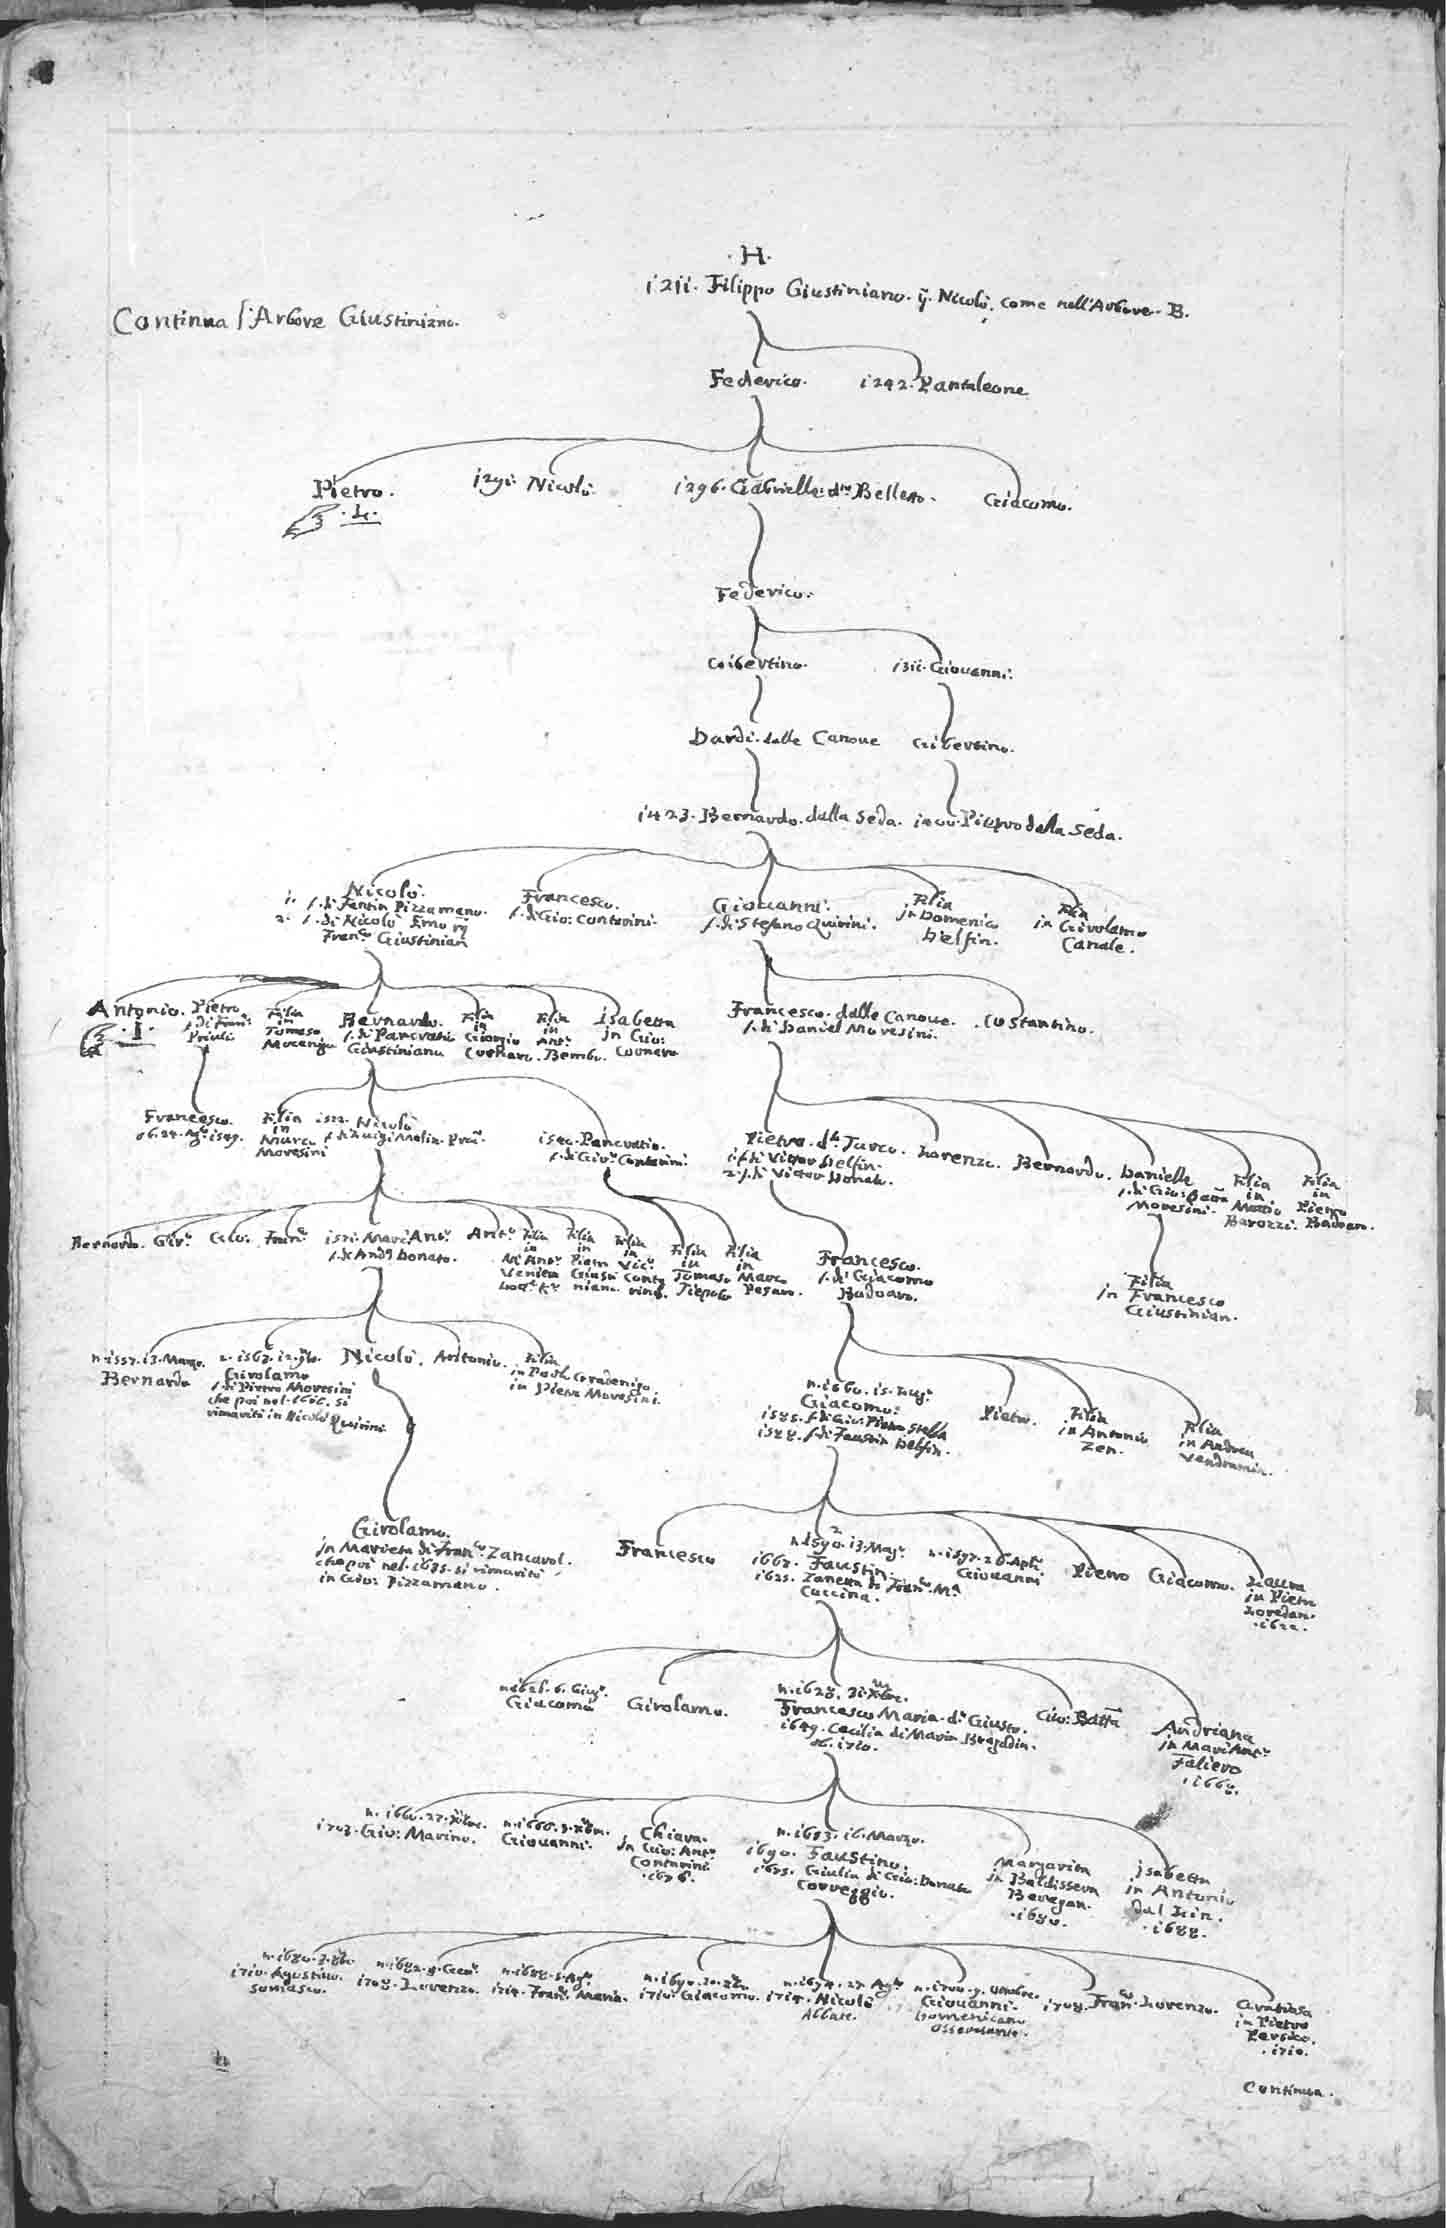 .H.
1211. Filippo Giustiniano. q. Nicolò, come nell'Arbore. B.
Continua l'Arbore Giustiniano.
Federico. 1242. Pantaleone
Pietro. 1291. Nicolò. 1296. Gabrielle. dto Belletto. Giacomo.
Federico.
Gibertino. 1311. Giovanni.
Dardi. dalle Canoue Gibertino.
1423. Bernardo. dalla Seda. Pietro dalla Seda.
Nicolò.
1. f. di Fantin Pizzamano.
2. f. di Nicolò Emo
Franco Giustinian
Francesco.
f. di Gio: Contarini.
Giouanni.
f. di Stefano Quirini.
Filia
in Domenico
Delfin.
Filia
in Girolamo
Canale.
Antonio.
.I.
Pietro
f. di Franco
Priuli
Filia
in
Tomaso
Mocenigo
Bernardo.
f. di Pancratio
Giustiniano
Filia
in
Giorgio
Cornaro.
Filia
in
Anto
Bembo.
Isabetta
in Gio:
Cornaro
Francesco. dalle Canoue.
f. di Daniel Moresini.
Costantino.
Francesco.
ob. 24. Ago 1549.
Filia
in
Marco
Moresini
1522. Nicolò
f. di Luigi Malin.
1540. Pancratio.
f. di Giro Contarini.
Pietro. dto Turco.
1. f. di Vittor Delfin.
2. f. di Victor Donato.
Lorenzo.
Bernardo.
Danielle
f. di Gio: Batta
Moresini.
Filia
in
Matio
Barozzi.
Filia
in
Pietro
Badoer.
Bernardo. Giro Gio: Franco
1571. Mari Anto
f. di Anda Donato.
Anto
Filia
in
M. Anto
Venier
Filia
in
Pietro
Giusti
niano.
Filia
in
Vico
Conta
rini.
Filia
in
Tomaso
Tiepolo
Filia
in
Marco
Pesaro.
Francesco.
f. di Giacomo
Badoaro.
Filia
in Francesco
Giustinian.
n. 1557. 13. Marzo.
Bernardo
Girolamo
f. di Pietro Moresini
che poi nel. 1606. si
rimaritò in Nicolò Quirini.
Nicolò. Antonio.
Filia
in Paolo Gradenigo.
in Piero Moresini.
Giacomo.
1585. f. di Gio: Pietro Stella
1588. f. di Faustin Delfin.
Pietro.
Filia
in Antonio
Zen.
Filia
in Andrea
Vendramin.
Girolamo.
in Marieta di Franco Zancarol.
che poi nel. 1635. si rimaritò
in Gio: Pizzamano.
Francesco
n. 1590. 13. Mago
Faustin.
1625. Zanetta di Franco Ma
Cuccina.
n. 1597. 26. Aple
Giouanni
Pietro Giacomo.
Laura
in Pietro
Loredan.
.1622.
6. Giugo
Giacomo
Girolamo.
n. 1628. 31. Xbre.
Francesco Maria. dto Giusto.
1649. Cecilia di Marin Bragadin.
ob. 1710.
Gio: Batta
Andriana
in Mari Anto
Faliero
.1660.
n. 1660. 27. Xbre.
1703. Gio: Marino.
Giouanni.
Chiara.
in Gio: Anto
Contarini
.1676.
n. 1653. 16. Marzo.
1690. Faustino.
1675. Giulia di Gio: Donato
Correggio.
Margarita
in Baldissera
Beregan.
.1680.
Isabetta
in Antonio
dal Lin.
.1688.
n. 1680.
1710. Agostino.
Somasco.
n. 1682. 9. Geno
1708. Lorenzo.
n. 1688. 5. Ago
1714. Franco Maria.
n. 1690.
1710. Giacomo.
n. 1694. 27. Ago
1714. Nicolò
Abbate.
n. 1700. 9. Ottobre.
Giouanni.
Domenicano
osseruante.
1708. Franco Lorenzo.
Gratiosa
in Pietro
Persico.
.1710.
Continua.